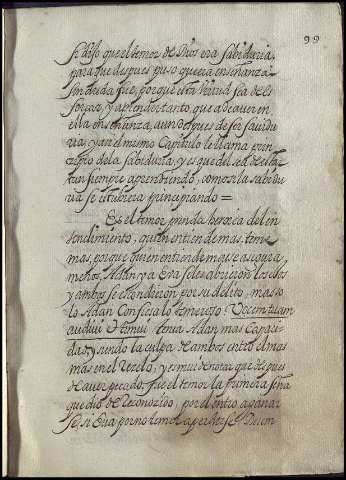 99
se dijo que el temor de Dios era sabiduria,
para que despues puso que era enseñanza
sin deida fue, porque esta virtud sea de
forçar, y atender tanto, que a de auer en
ella enseñanza, aun despues de ser sauidu
ria, y an el mismo Capitulo le llama prin
cipio de la sabiduria, y es que del se a de estar
tan siempre aprendiendo, como si la sabidu
ria se estubiera principiando =
Es el temor prenda heroica del en
tendimiento, quien entiende mas, teme
mas, porque quien entiende mas se asegura
menos, Adan, y a Eva se les abrieron los ojos
y ambos se escondieron por su delito, mas so
lo Adan Confiesa lo temeroso Vocem tuam
audiui & timui tenia Adan mas Capaci
dad, y siendo la culpa de ambos entro el mas
mas en el Recelo, y es mui de notar que despues
de auer pecado, fue el temor la primera seña
que dio de Reconozido, por el entro a ganar
se, si Eva por no temer a perderse Dicen